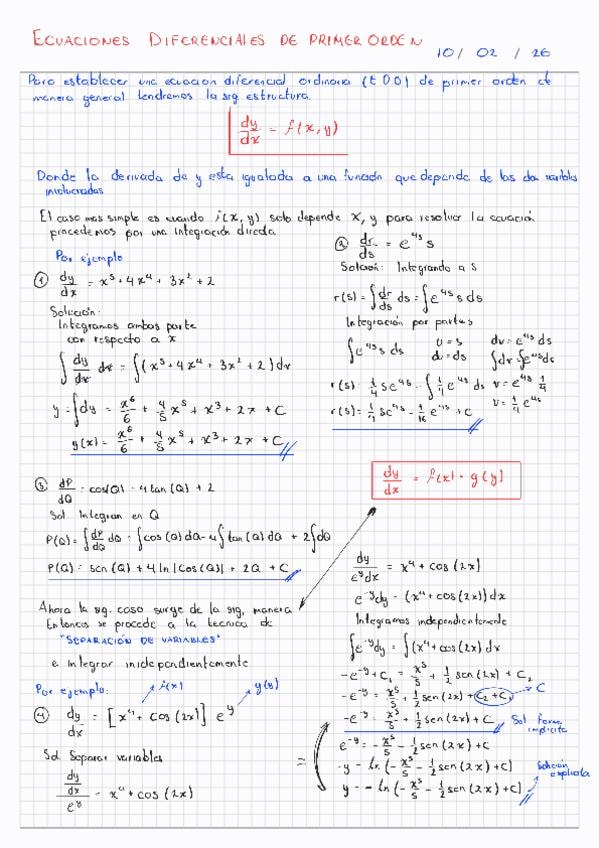 ECUACIONES DIFERENCIALES DE PRIMER ORDEN
10 / 02 / 26
Para establecer una ecuacion diferencial ordinaria (EDO) de primer orden de
manera general tendremos la sig estructura.
dy/dx = f(x, y)
Donde la derivada de y esta igualada a una función que depende de las dos varibles
involucradas
El caso mas simple es cuando f(x, y) solo depende x, y para resolver la ecuación
procedemos por una integración directa.
Por ejemplo
① dy/dx = x⁵ + 4x⁴ + 3x² + 2
Solución:
Integramos ambos parte
con respecto a x
∫ dy/dx dx = ∫(x⁵ + 4x⁴ + 3x² + 2) dx
y = ∫dy = x⁶/6 + 4/5 x⁵ + x³ + 2x + C
y(x) = x⁶/6 + 4/5 x⁵ + x³ + 2x + C
② dr/ds = e⁴ˢ s
Solución: Integrando a S
r(s) = ∫ dr/ds ds = ∫e⁴ˢ s ds
Integración por partes
∫e⁴ˢ s ds u = s dv = e⁴ˢ ds
du = ds ∫dv = ∫e⁴ˢ ds
r(s) = 1/4 s e⁴ˢ - ∫ 1/4 e⁴ˢ ds v = e⁴ˢ 1/4
r(s) = 1/4 s e⁴ˢ - 1/16 e⁴ˢ + C v = 1/4 e⁴ˢ
③ dP/dQ = cos(Q) - 4 tan(Q) + 2
Sol. Integran en Q
P(Q) = ∫ dP/dQ dQ = ∫cos(Q) dQ - 4∫tan(Q) dQ + 2∫dQ
P(Q) = sen(Q) + 4 ln|Cos(Q)| + 2Q + C
dy/dx = f(x) · g(y)
Ahora la sig. caso surge de la sig. manera
Entonces se procede a la tecnica de
"SEPARACIÓN DE VARIABLES"
e integrar inidependientemente
Por ejemplo: f(x) g(y)
④ dy/dx = [x⁴ + cos(2x)] eʸ
Sol. Separar variables
(dy/dx)/eʸ = x⁴ + cos(2x)
dy/(eʸ dx) = x⁴ + cos(2x)
e⁻ʸ dy = (x⁴ + cos(2x)) dx
Integramos independientemente
∫e⁻ʸ dy = ∫(x⁴ + cos(2x) dx
-e⁻ʸ + C₁ = x⁵/5 + 1/2 sen(2x) + C₂
-e⁻ʸ = x⁵/5 + 1/2 sen(2x) + C₂ + C₁ C
-e⁻ʸ = x⁵/5 + 1/2 sen(2x) + C Sol forma
implicita
e⁻ʸ = -x⁵/5 - 1/2 sen(2x) + C
= -y = ln(-x⁵/5 - 1/2 sen(2x) + C)
y = -ln(-x⁵/5 - 1/2 sen(2x) + C) Solución
explicita